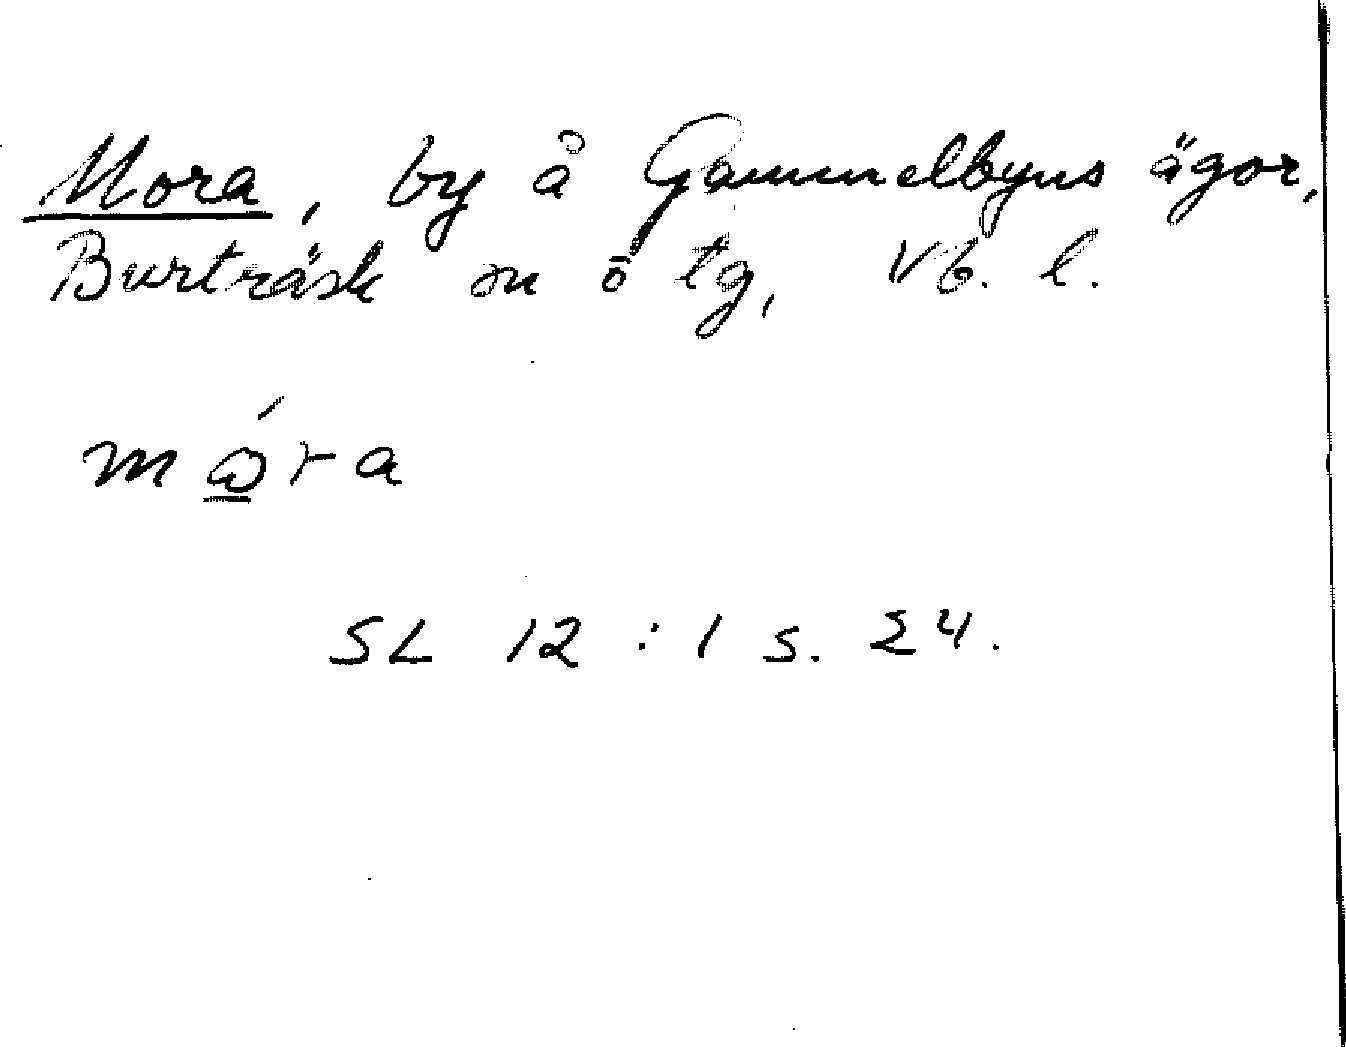 Mora, by å Gammelbyns ägor,
Burträsk sn ö tg, Vb. l.
mɷ́ra
SL 12 : 1 s. 24.